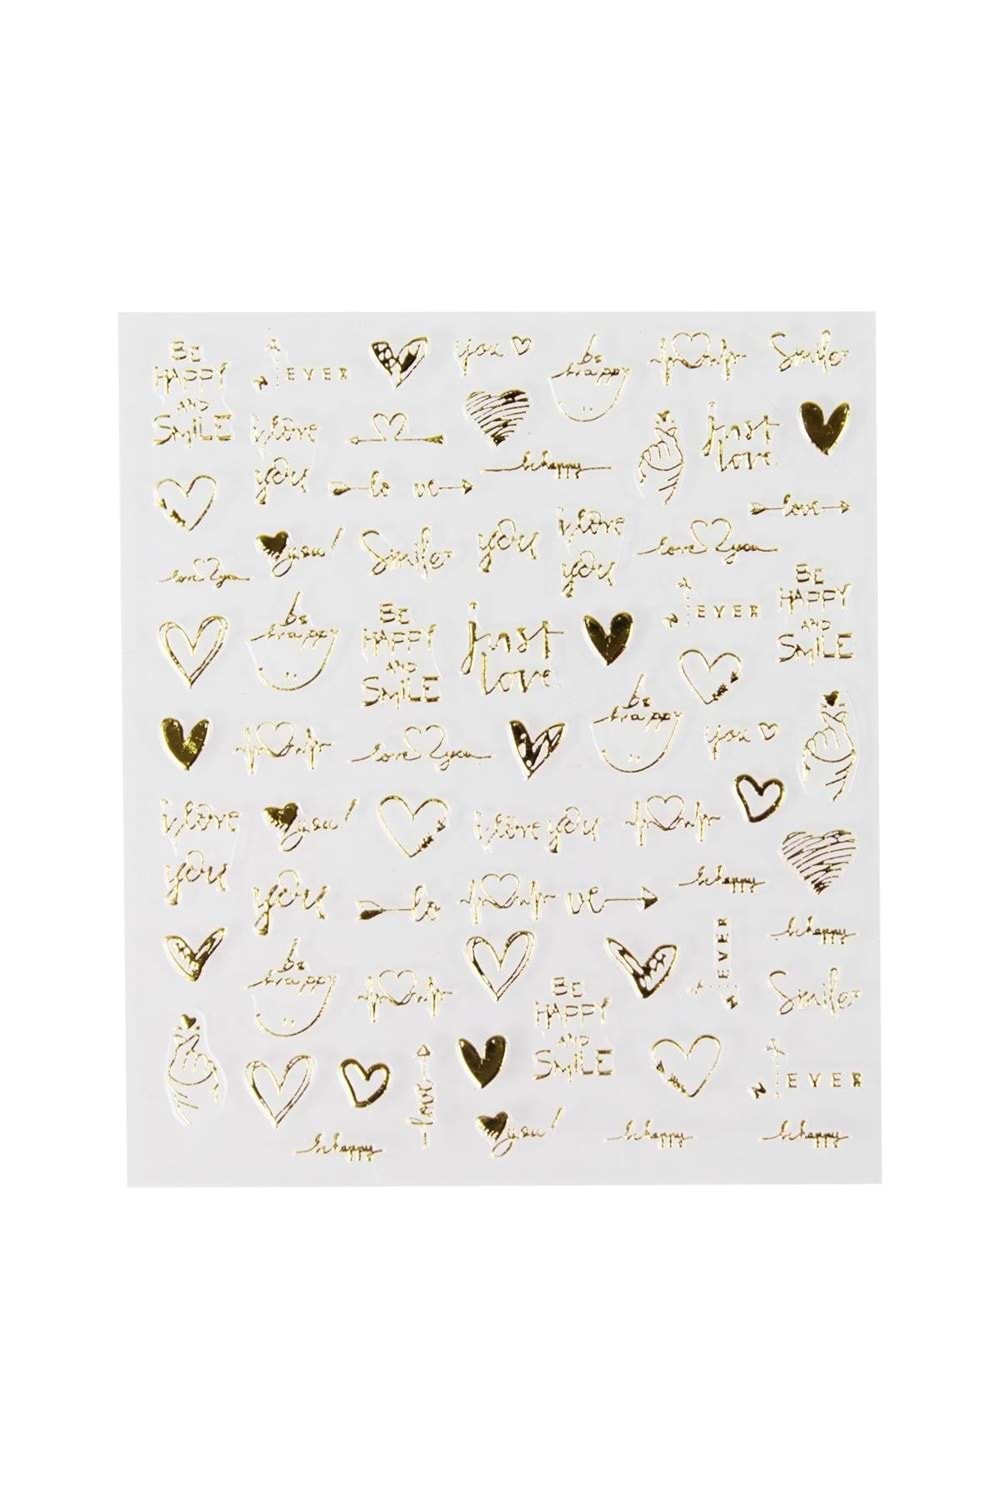 BE
HAPPY
AND
SMILE
NEVER
you
be
happy
Smile
i love
you
just
love
be happy
lo ve
love
love you
you!
Smile
you
i love
you
be
happy
BE
HAPPY
AND
SMILE
just
love
NEVER
BE
HAPPY
AND
SMILE
love you
be
happy
you
i love
you
you!
i love you
you
lo
ve
be happy
be happy
be
happy
NEVER
Smile
BE
HAPPY
AND
SMILE
love
NEVER
be happy
you!
be happy
be happy